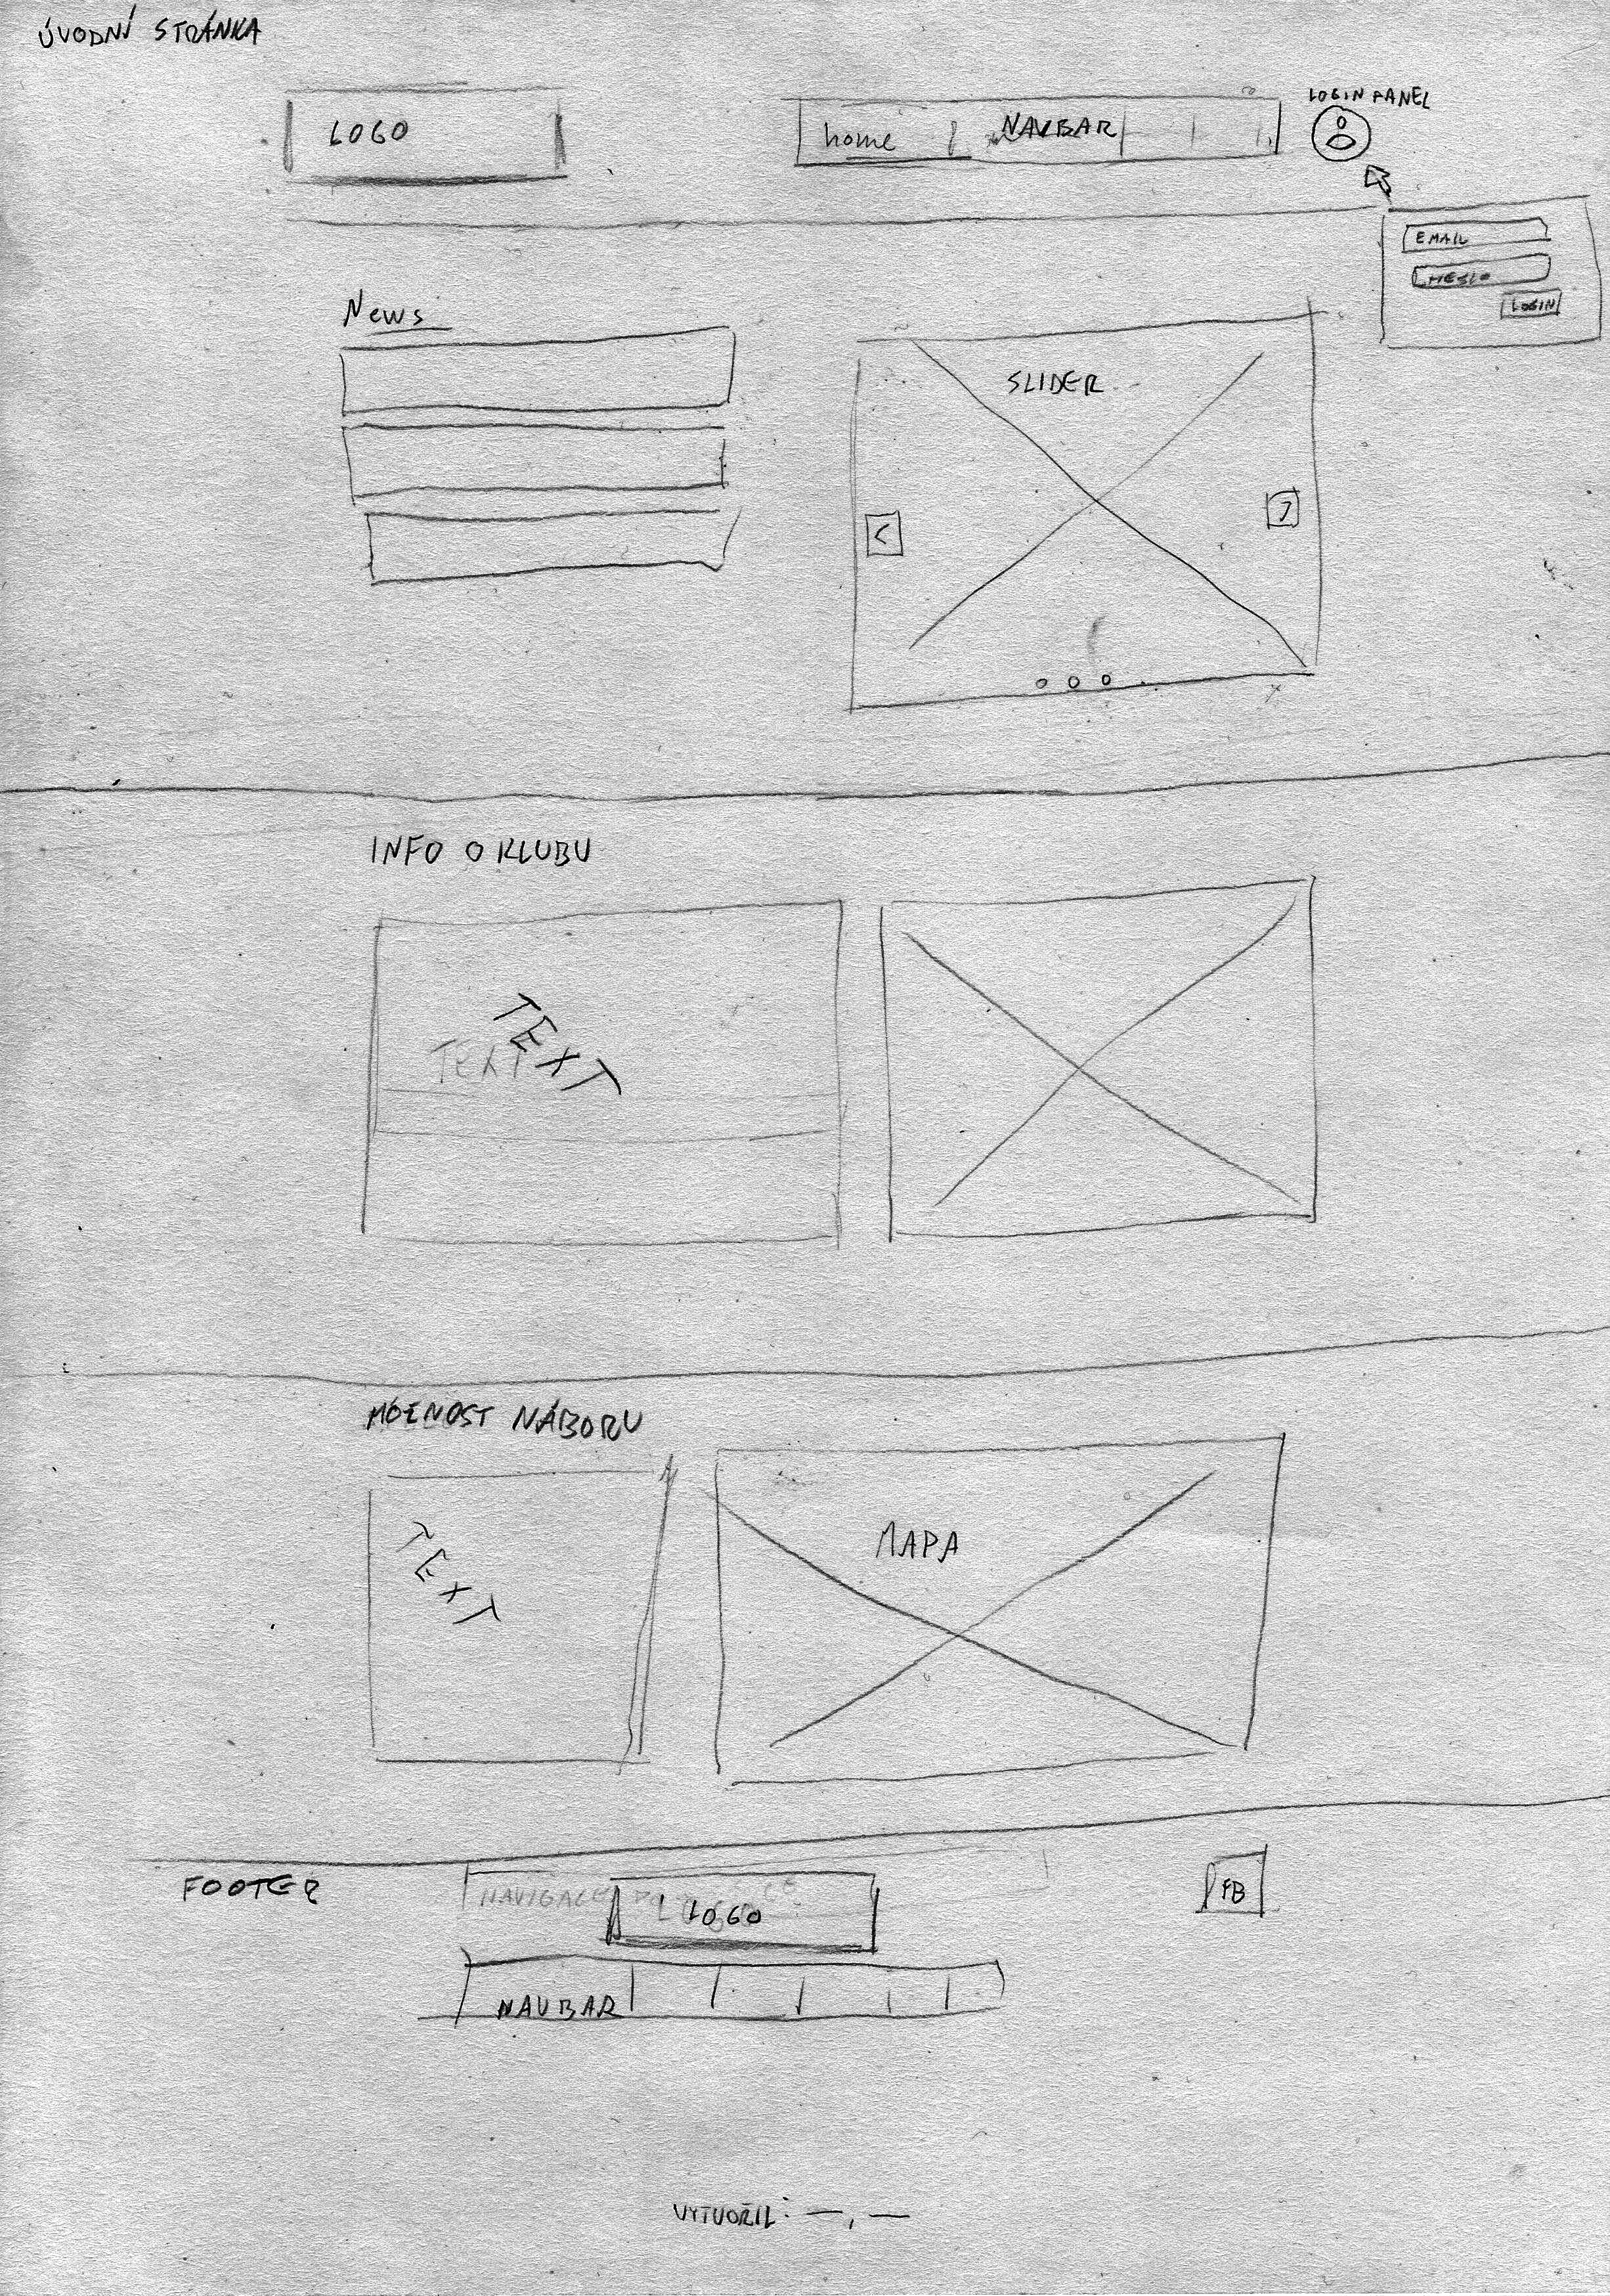 ÚVODNÍ STRÁNKA
LOGO
home
NAVBAR
LOGIN PANEL
EMAIL
HESLO
LOGIN
News
SLIDER
<
>
INFO O KLUBU
TEXT
TEXT
MOŽNOST NÁBORU
TEXT
MAPA
FOOTER
NAVIGACE
LOGO
FB
NAVBAR
VYTVOŘIL: —, —